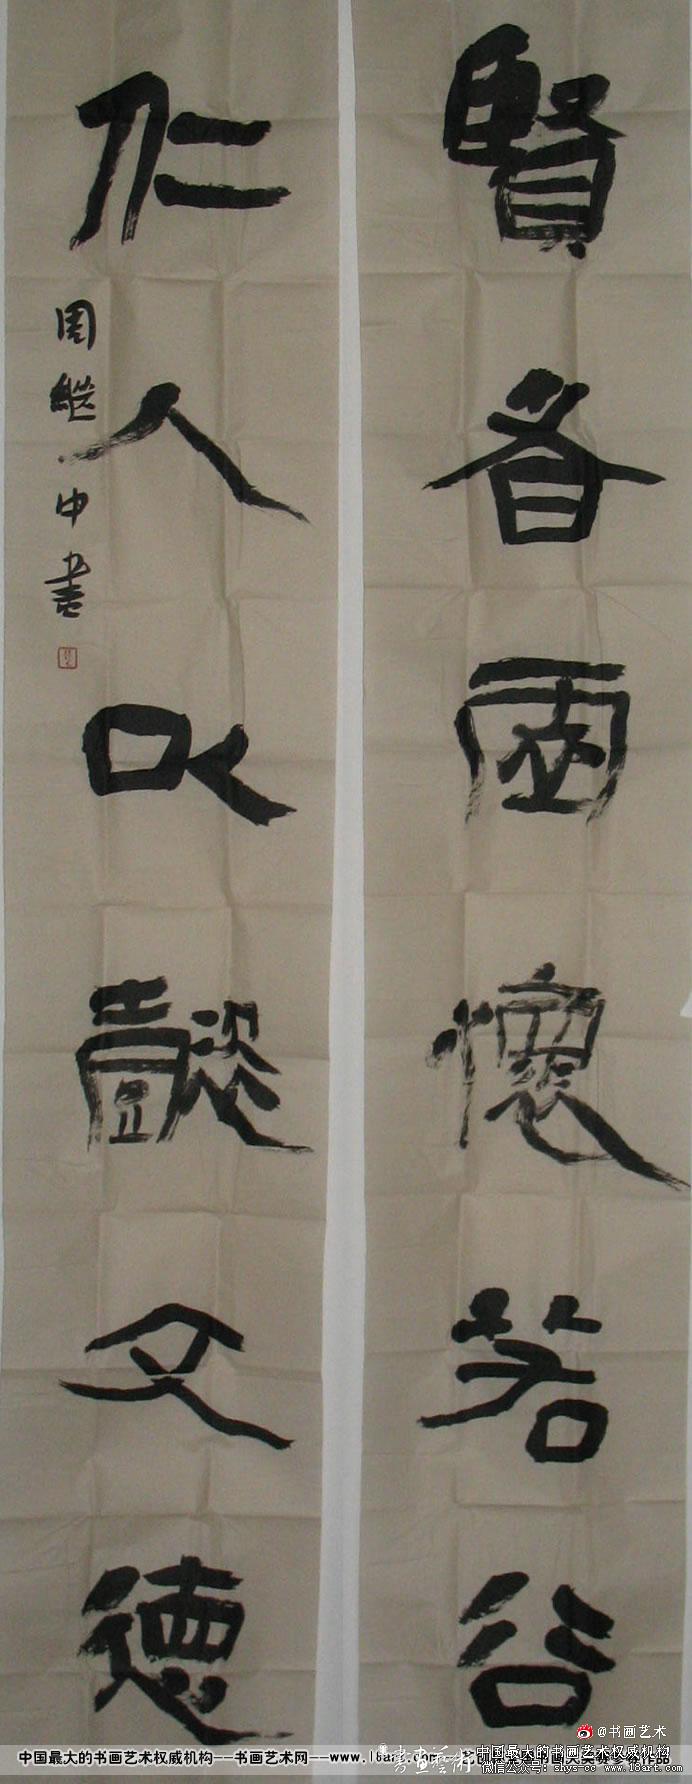 賢者虛懷若谷
仁人以懿文德
周繼中書
@书画艺术
中国最大的书画艺术权威机构---书画艺术网---www.18art.com
书画艺术
中国最大的书画艺术权威机构
微信公众号：shys-cc www.18art.com